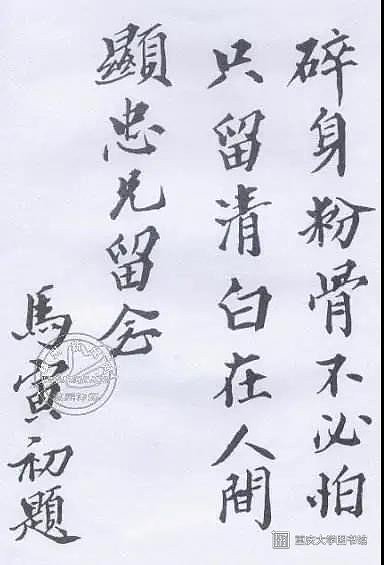 碎身粉骨不必怕
只留清白在人間
顯忠兄留念
馬寅初題
重庆大学图书馆